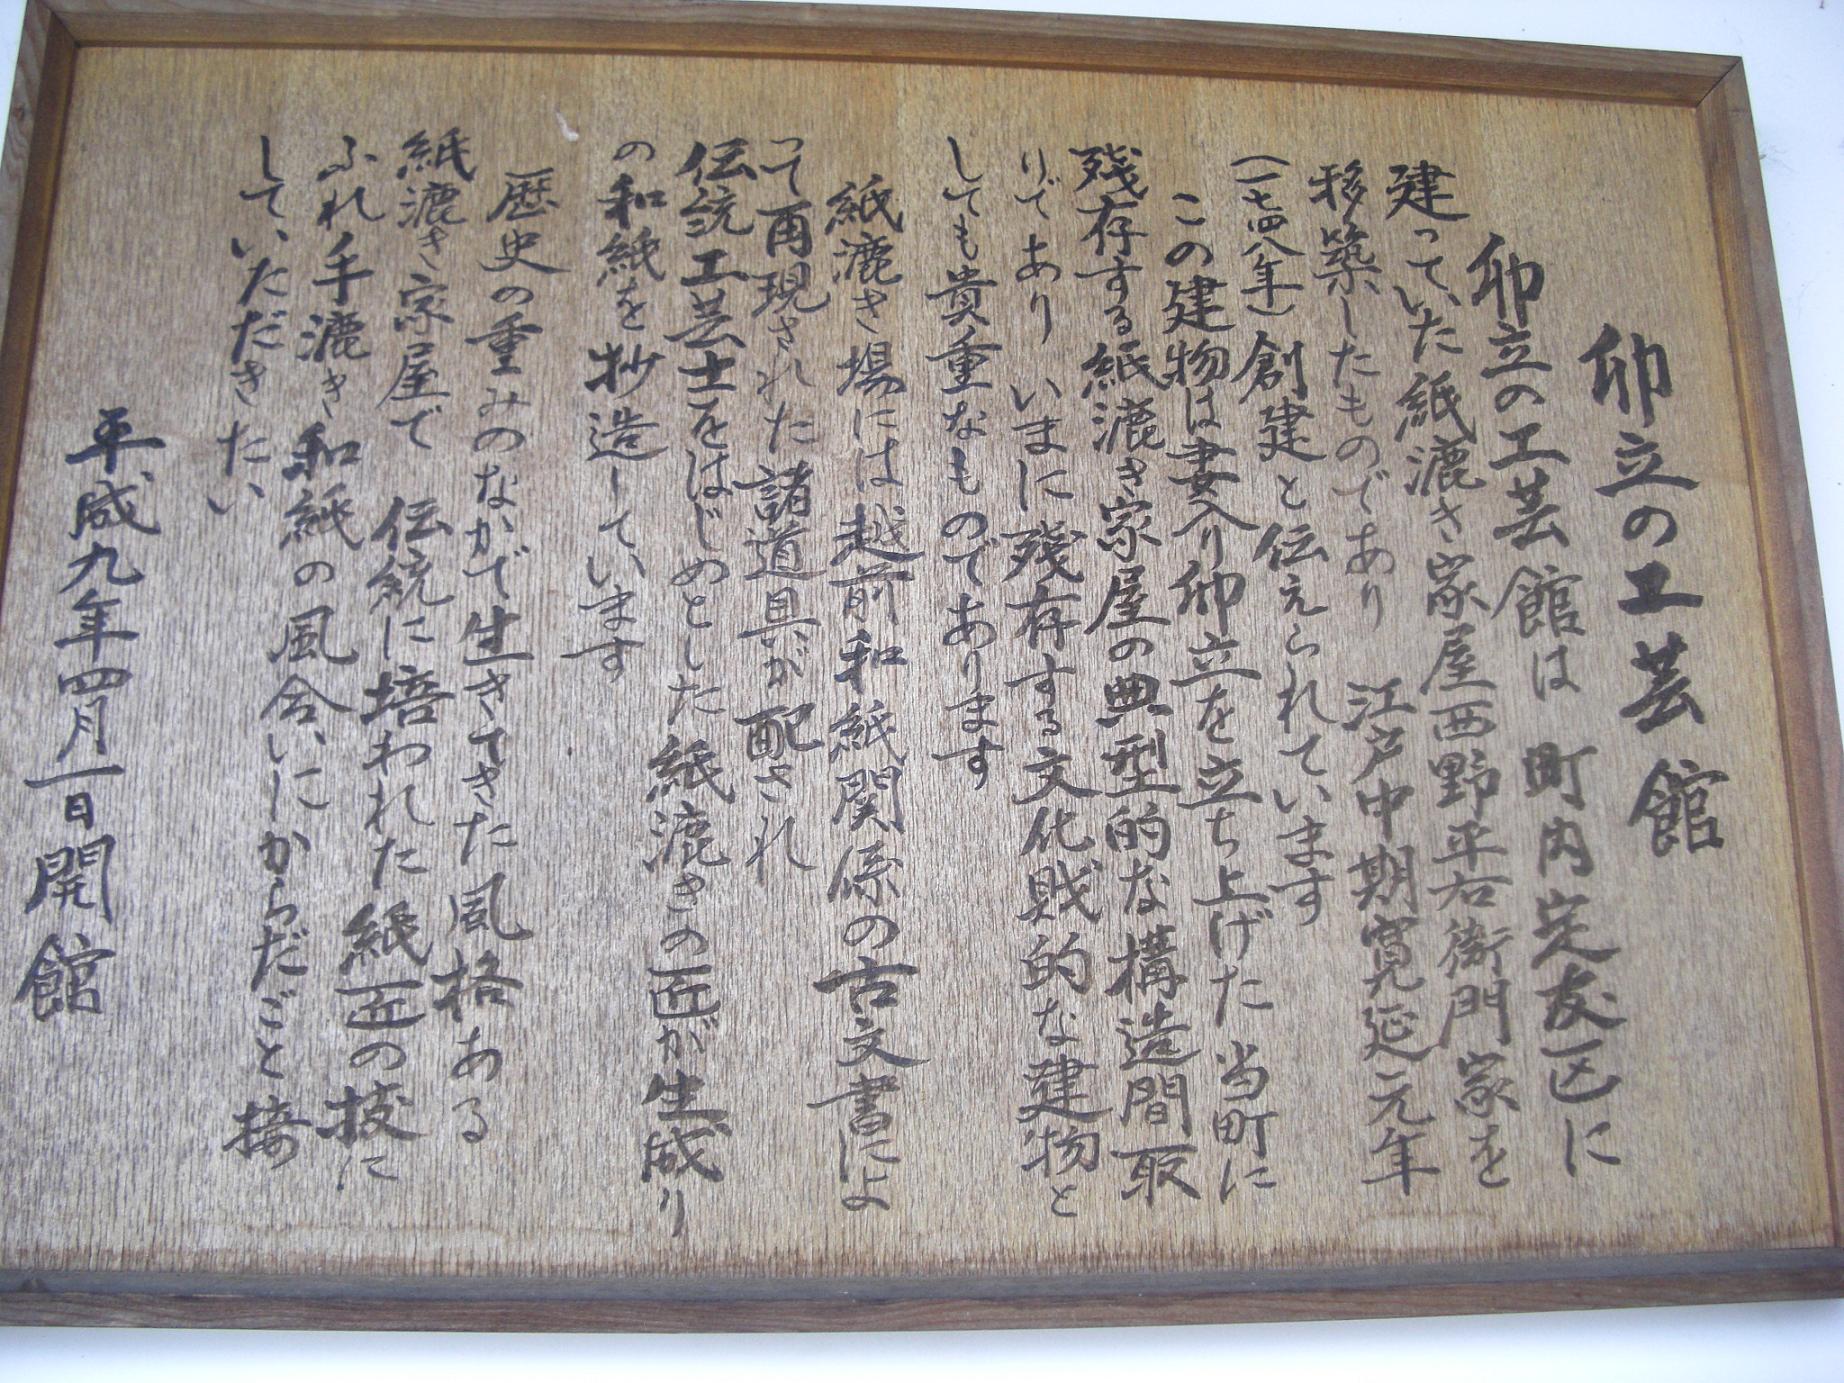 卯立の工芸館
卯立の工芸館は 町内定友区に
建っていた紙漉き家屋西野平右衛門家を
移築したものであり 江戸中期寛延元年
(一七四八年)創建と伝えられています
この建物は妻入り卯立を立ち上げた 当町に
残存する紙漉き家屋の典型的な構造間取
りであり いまに残存する文化財的な建物と
しても貴重なものであります
紙漉き場には越前和紙関係の古文書によ
って再現された諸道具が配され
伝統工芸士をはじめとした紙漉きの匠が生成り
の和紙を抄造しています
歴史の重みのなかで生きてきた風格ある
紙漉き家屋で 伝統に培われた紙匠の技に
ふれ手漉き和紙の風合いにからだごと接
していただきたい
平成九年四月一日開館